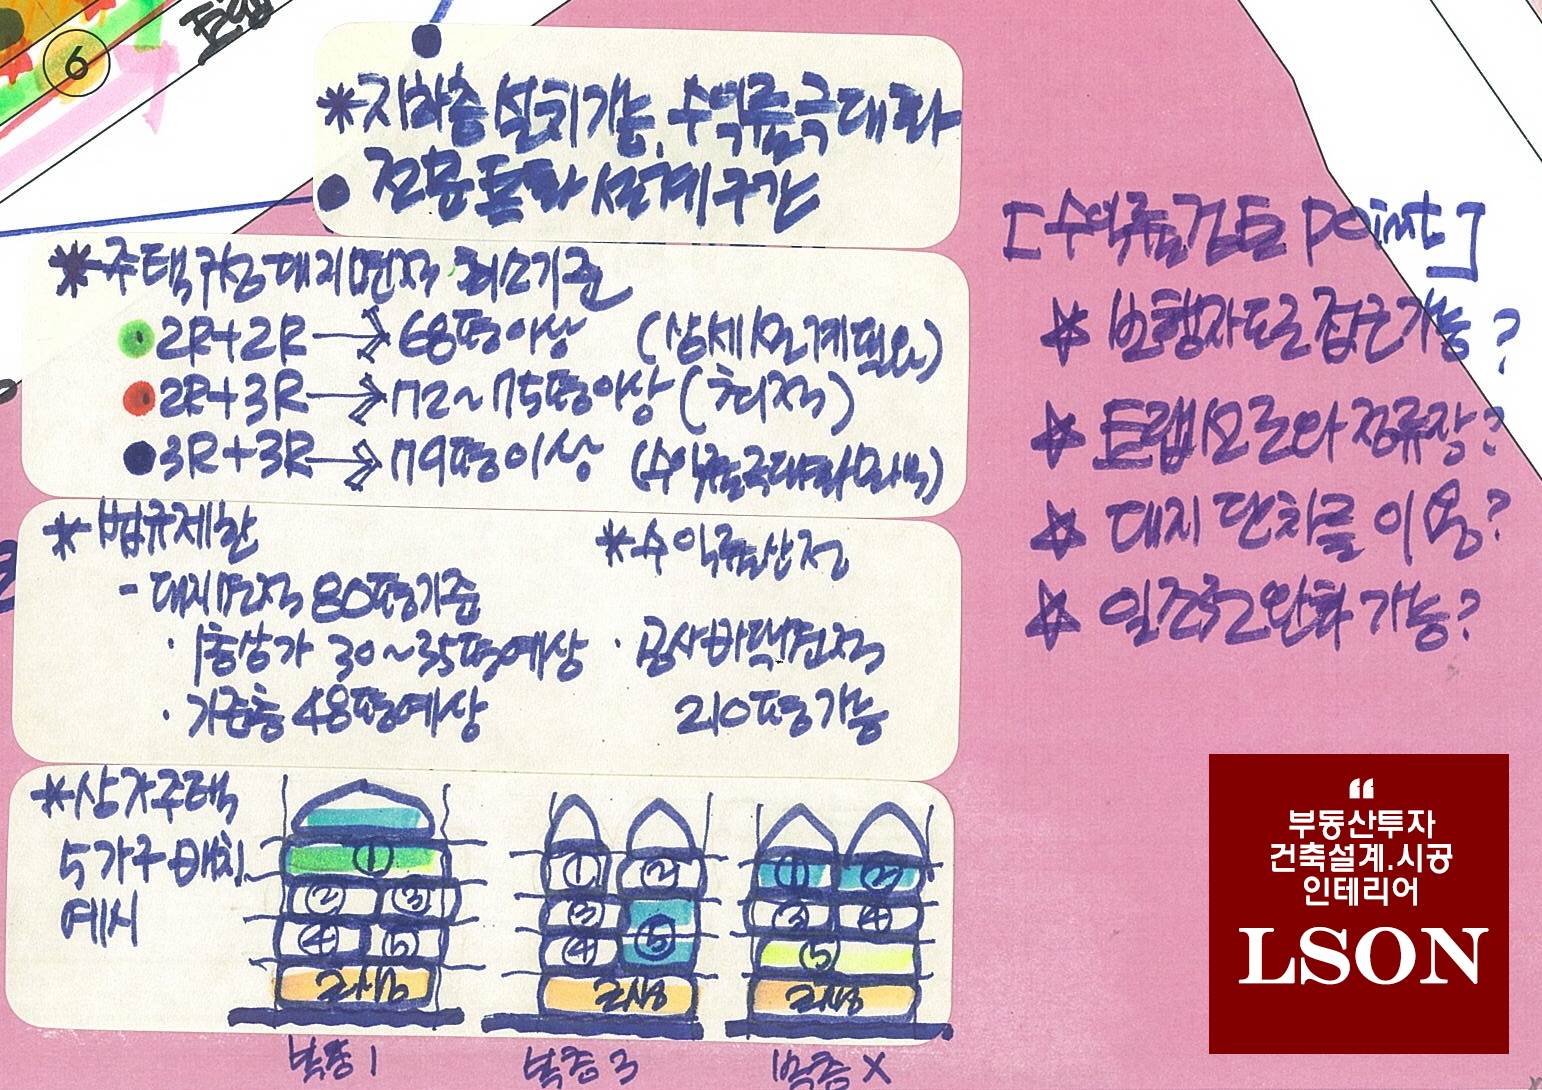 6
트램
*지하층 설치가능, 수익률 극대화
● 전용 특화 설계구간
*주택구성 대지면적 최소기준
2R+2R → 68평이상 (상세설계필요)
2R+3R → 72~75평이상 (최적)
3R+3R → 79평이상 (수익률극대화목적)
*법규제한
- 대지면적 80평기준
· 1층상가 30~35평예상
· 기준층 48평예상
*수익률산정
· 공사바닥면적
210평가능
*상가주택
5가구 배치
예시
① ② ③ ④ ⑤
근생
복층 1
① ② ③ ④ ⑤
근생
복층 3
① ② ③ ④ ⑤
근생
복층 X
[수익률검토 point]
☆ 보행자도로 접근가능?
☆ 트램선로와 정류장?
☆ 대지 단차를 이용?
☆ 일조권완화 가능?
“
부동산투자
건축설계.시공
인테리어
LSON